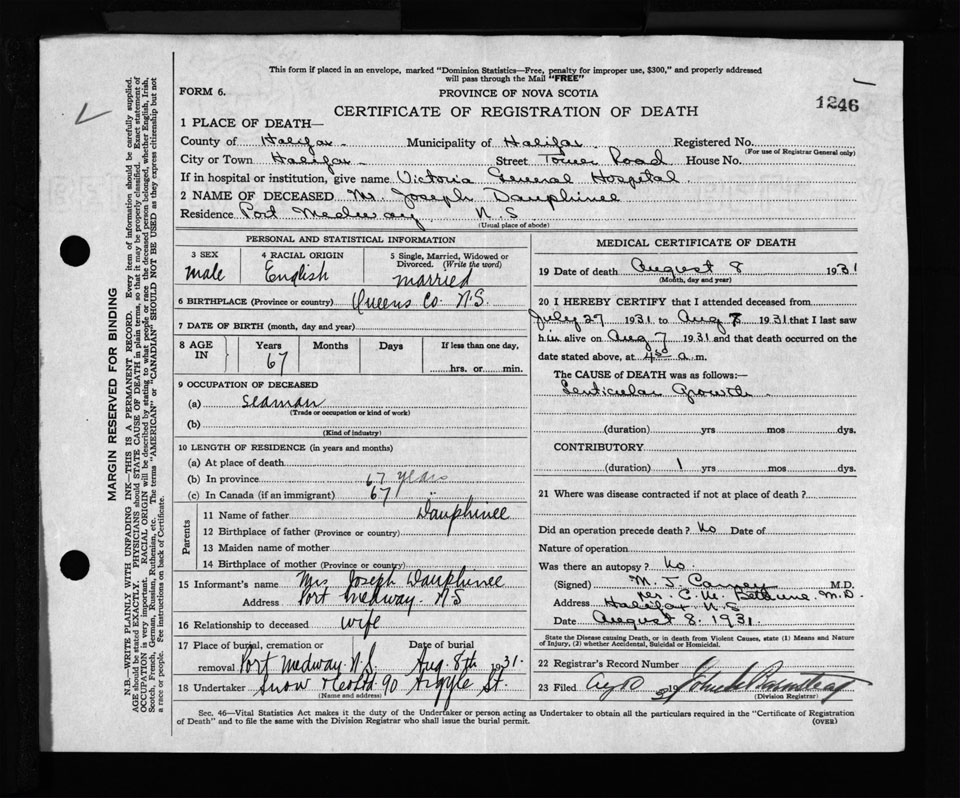 This form if placed in an envelope, marked "Dominion Statistics—Free, penalty for improper use, $300," and properly addressed
will pass through the Mail "FREE"
FORM 6.
PROVINCE OF NOVA SCOTIA
1246
CERTIFICATE OF REGISTRATION OF DEATH
1 PLACE OF DEATH—
County of Halifax Municipality of Halifax Registered No.
(For use of Registrar General only)
City or Town Halifax Street Tower Road House No.
If in hospital or institution, give name Victoria General Hospital
2 NAME OF DECEASED Mr. Joseph Dauphinee
Residence Port Medway N.S.
(Usual place of abode)
MARGIN RESERVED FOR BINDING
N.B.—WRITE PLAINLY WITH UNFADING INK—THIS IS A PERMANENT RECORD. Every item of information should be carefully supplied.
AGE should be stated EXACTLY. PHYSICIANS should STATE CAUSE OF DEATH in plain terms, so that it may be properly classified. Exact statement of
OCCUPATION is very important. RACIAL ORIGIN will be described by stating to what people or race the deceased person belonged, whether English, Irish,
Scotch, French, German, Russian, Ruthenian, etc. The terms "AMERICAN" or "CANADIAN" SHOULD NOT BE USED as they express citizenship but not
a race or people. See instructions on back of Certificate.
PERSONAL AND STATISTICAL INFORMATION
3 SEX
male
4 RACIAL ORIGIN
English
5 Single, Married, Widowed or
Divorced. (Write the word)
married
6 BIRTHPLACE (Province or country) Queens Co. N.S.
7 DATE OF BIRTH (month, day and year)
8 AGE IN
Years
67
Months
Days
If less than one day,
hrs. or min.
9 OCCUPATION OF DECEASED
(a) Seaman
(Trade or occupation or kind of work)
(b)
(Kind of industry)
10 LENGTH OF RESIDENCE (in years and months)
(a) At place of death
(b) In province 67 years
(c) In Canada (if an immigrant) 67 "
Parents
11 Name of father Dauphinee
12 Birthplace of father (Province or country)
13 Maiden name of mother
14 Birthplace of mother (Province or country)
15 Informant's name Mrs Joseph Dauphinee
Address Port Medway. N.S
16 Relationship to deceased wife
17 Place of burial, cremation or
removal Port Medway N.S.
Date of burial
Aug. 8th 1931.
18 Undertaker Snow & Co Ltd 90 Argyle St.
(Name and address)
MEDICAL CERTIFICATE OF DEATH
19 Date of death August 8 1931
(Month, day and year)
20 I HEREBY CERTIFY that I attended deceased from
July 27 1931 to Aug 8 1931 that I last saw
him alive on Aug 7 1931 and that death occurred on the
date stated above, at a.m.
The CAUSE of DEATH was as follows:—
Lenticular Growth
(duration) yrs mos dys.
CONTRIBUTORY
(duration) 1 yrs mos dys.
21 Where was disease contracted if not at place of death?
Did an operation precede death? No Date of
Nature of operation
Was there an autopsy? No.
(Signed) M. J. Carney M.D.
per. C. M. Bethune. M.D.
Address Halifax N.S.
Date August 8. 1931.
State the Disease causing Death, or in death from Violent Causes, state (1) Means and Nature
of Injury, (2) whether Accidental, Suicidal or Homicidal.
22 Registrar's Record Number
23 Filed 19
(Division Registrar)
Sec. 46—Vital Statistics Act makes it the duty of the Undertaker or person acting as Undertaker to obtain all the particulars required in the "Certificate of Registration
of Death" and to file the same with the Division Registrar who shall issue the burial permit.
(OVER)